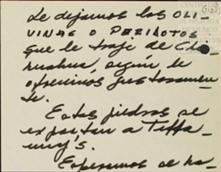 Le dejamos los OLI-
VINAS O PERIDOTOS
que le traje de Chi-
huahua, según le
ofrecimos gustosamen-
te.
Estas piedras se
exportan a Tiffa-
ny's.
Esperamos se ha-